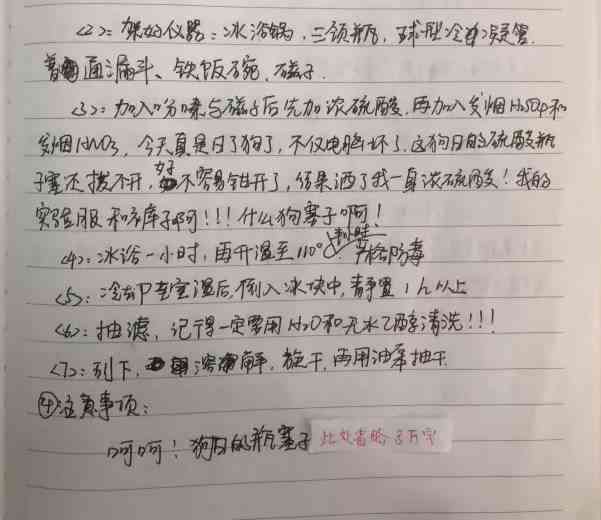 <2>: 架好仪器:冰浴锅,三颈瓶,球型冷凝管,
普通漏斗、铁饭碗,磁子.
<3>: 加入吩嗪与磁子后先加浓硫酸,再加入发烟H₂SO₄和
发烟HNO₃,今天真是日了狗了,不仅电脑坏了,这狗日的硫酸瓶
子塞还拔不开,好不容易钳开了,结果洒了我一身浓硫酸!我的
实验服和裤子啊!!!什么狗塞子啊!
<4>: 冰浴一小时,再升温至110°过夜 严格防毒
<5>: 冷却至室温后,倒入冰块中,静置1h以上
<6>: 抽滤,记得一定要用H₂O和无水乙醇清洗!!!
<7>: 刮下,溶解,旋干,再用油泵抽干
④注意事项:
呵呵!狗日的瓶塞子 此处省略3万字